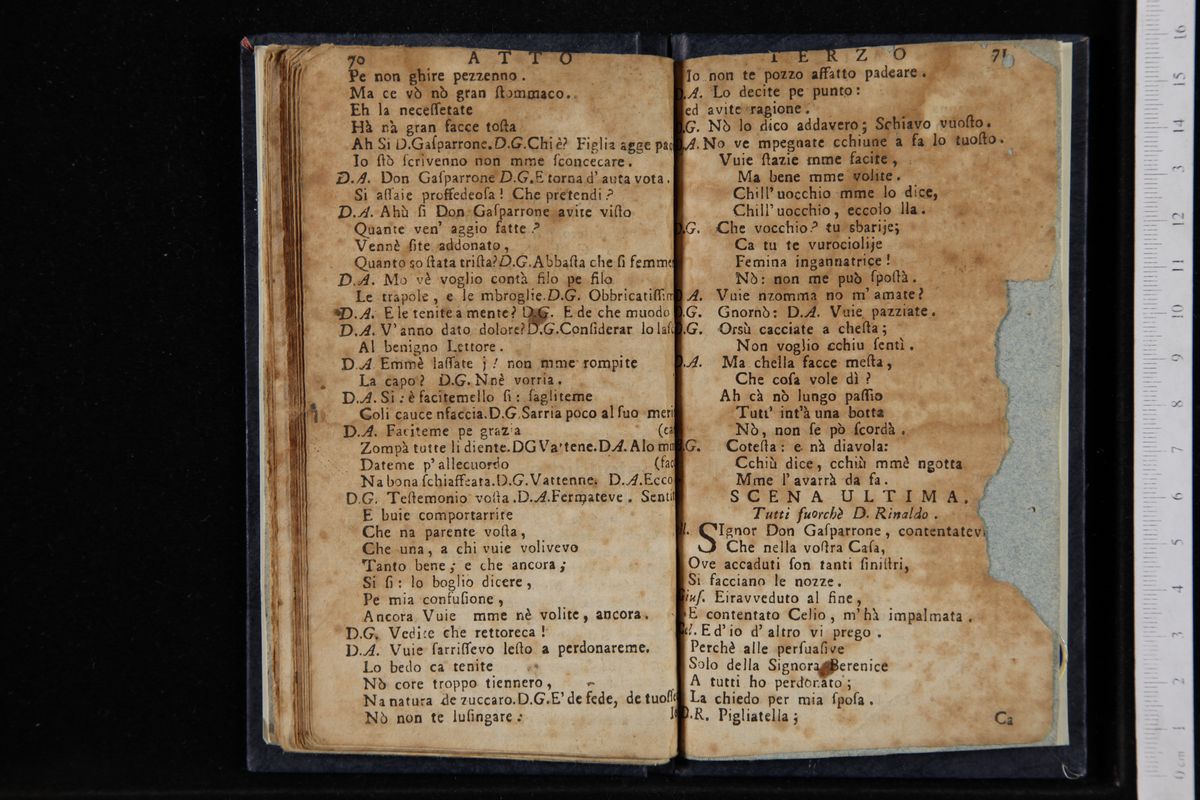 70 ATTO
Pe non ghire pezzenno.
Ma ce vò nò gran ſtommaco.
Eh la neceſſetate
Hà nà gran facce toſta
Ah Si D.Gaſparrone. D.G. Chi è? Figlia agge
Io ſtò ſcrivenno non mme ſconcecare.
D.A. Don Gaſparrone D.G. E torna d'auta vota.
Si aſſaie proffedeoſa! Che pretendi?
D.A. Ahù ſi Don Gaſparrone avite viſto
Quante ven' aggio fatte?
Vennè ſite addonato,
Quanto so ſtata triſta? D.G. Abbaſta che ſi femme
D.A. Mo vè voglio contà filo pe filo
Le trapole, e le mbroglie. D.G. Obbricatiſſim
D.A. E le tenite a mente? D.G. E de che muodo
D.A. V'anno dato dolore? D.G. Conſiderar lo laſ
Al benigno Lettore.
D.A Emmè laſſate j! non mme rompite
La capo? D.G. Nnè vorria.
D.A. Si: è facitemello ſi: ſagliteme
Coli cauce nfaccia. D.G. Sarria poco al ſuo meri
D.A. Faciteme pe grazia (ca
Zompà tutte li diente. DG Vattene. DA. Alo
Dateme p'allecuordo (fac
Na bona ſchiaffeata. D.G. Vattenne. D.A. Ecco
D.G. Teſtemonio voſta. D.A. Fermateve. Senti
E buie comportarrite
Che na parente voſta,
Che una, a chi vuie volivevo
Tanto bene; e che ancora;
Si ſi: lo boglio dicere,
Pe mia confuſione,
Ancora Vuie mme nè volite, ancora.
D.G. Vedite che rettoreca!
D.A. Vuie ſarriſſevo leſto a perdonareme.
Lo bedo ca tenite
Nò core troppo tiennero,
Na natura de zuccaro. D.G. E' de fede, de tuoſſe
Nò non te luſingare:
TERZO 71
Io non te pozzo affatto padeare.
D.A. Lo decite pe punto:
ed avite ragione.
D.G. Nò lo dico addavero; Schiavo vuoſto.
D.A. No ve mpegnate cchiune a fa lo tuoſto.
Vuie ſtazie mme facite,
Ma bene mme volite.
Chill'uocchio mme lo dice,
Chill'uocchio, eccolo lla.
D.G. Che vocchio? tu sbarije;
Ca tu te vurociolije
Femina ingannatrice!
Nò: non me può ſpoſtà.
D.A. Vuie nzomma no m'amate?
D.G. Gnornò: D.A. Vuie pazziate.
D.G. Orsù cacciate a cheſta;
Non voglio cchiu ſentì.
D.A. Ma chella facce meſta,
Che coſa vole dì?
Ah cà nò lungo paſſio
Tutt' int'à una botta
Nò, non ſe pò ſcordà.
D.G. Coteſta: e nà diavola:
Cchiù dice, cchiù mmè ngotta
Mme l'avarrà da fa.
SCENA ULTIMA.
Tutti fuorchè D. Rinaldo.
SIgnor Don Gaſparrone, contentatevi
Che nella voſtra Caſa,
Ove accaduti ſon tanti ſiniſtri,
Si facciano le nozze.
Giuſ. Eiravveduto al fine,
E contentato Celio, m'hà impalmata.
Cel. Ed'io d'altro vi prego.
Perchè alle perſuaſive
Solo della Signora Berenice
A tutti ho perdonato;
La chiedo per mia ſpoſa.
D.R. Pigliatella;
Ca